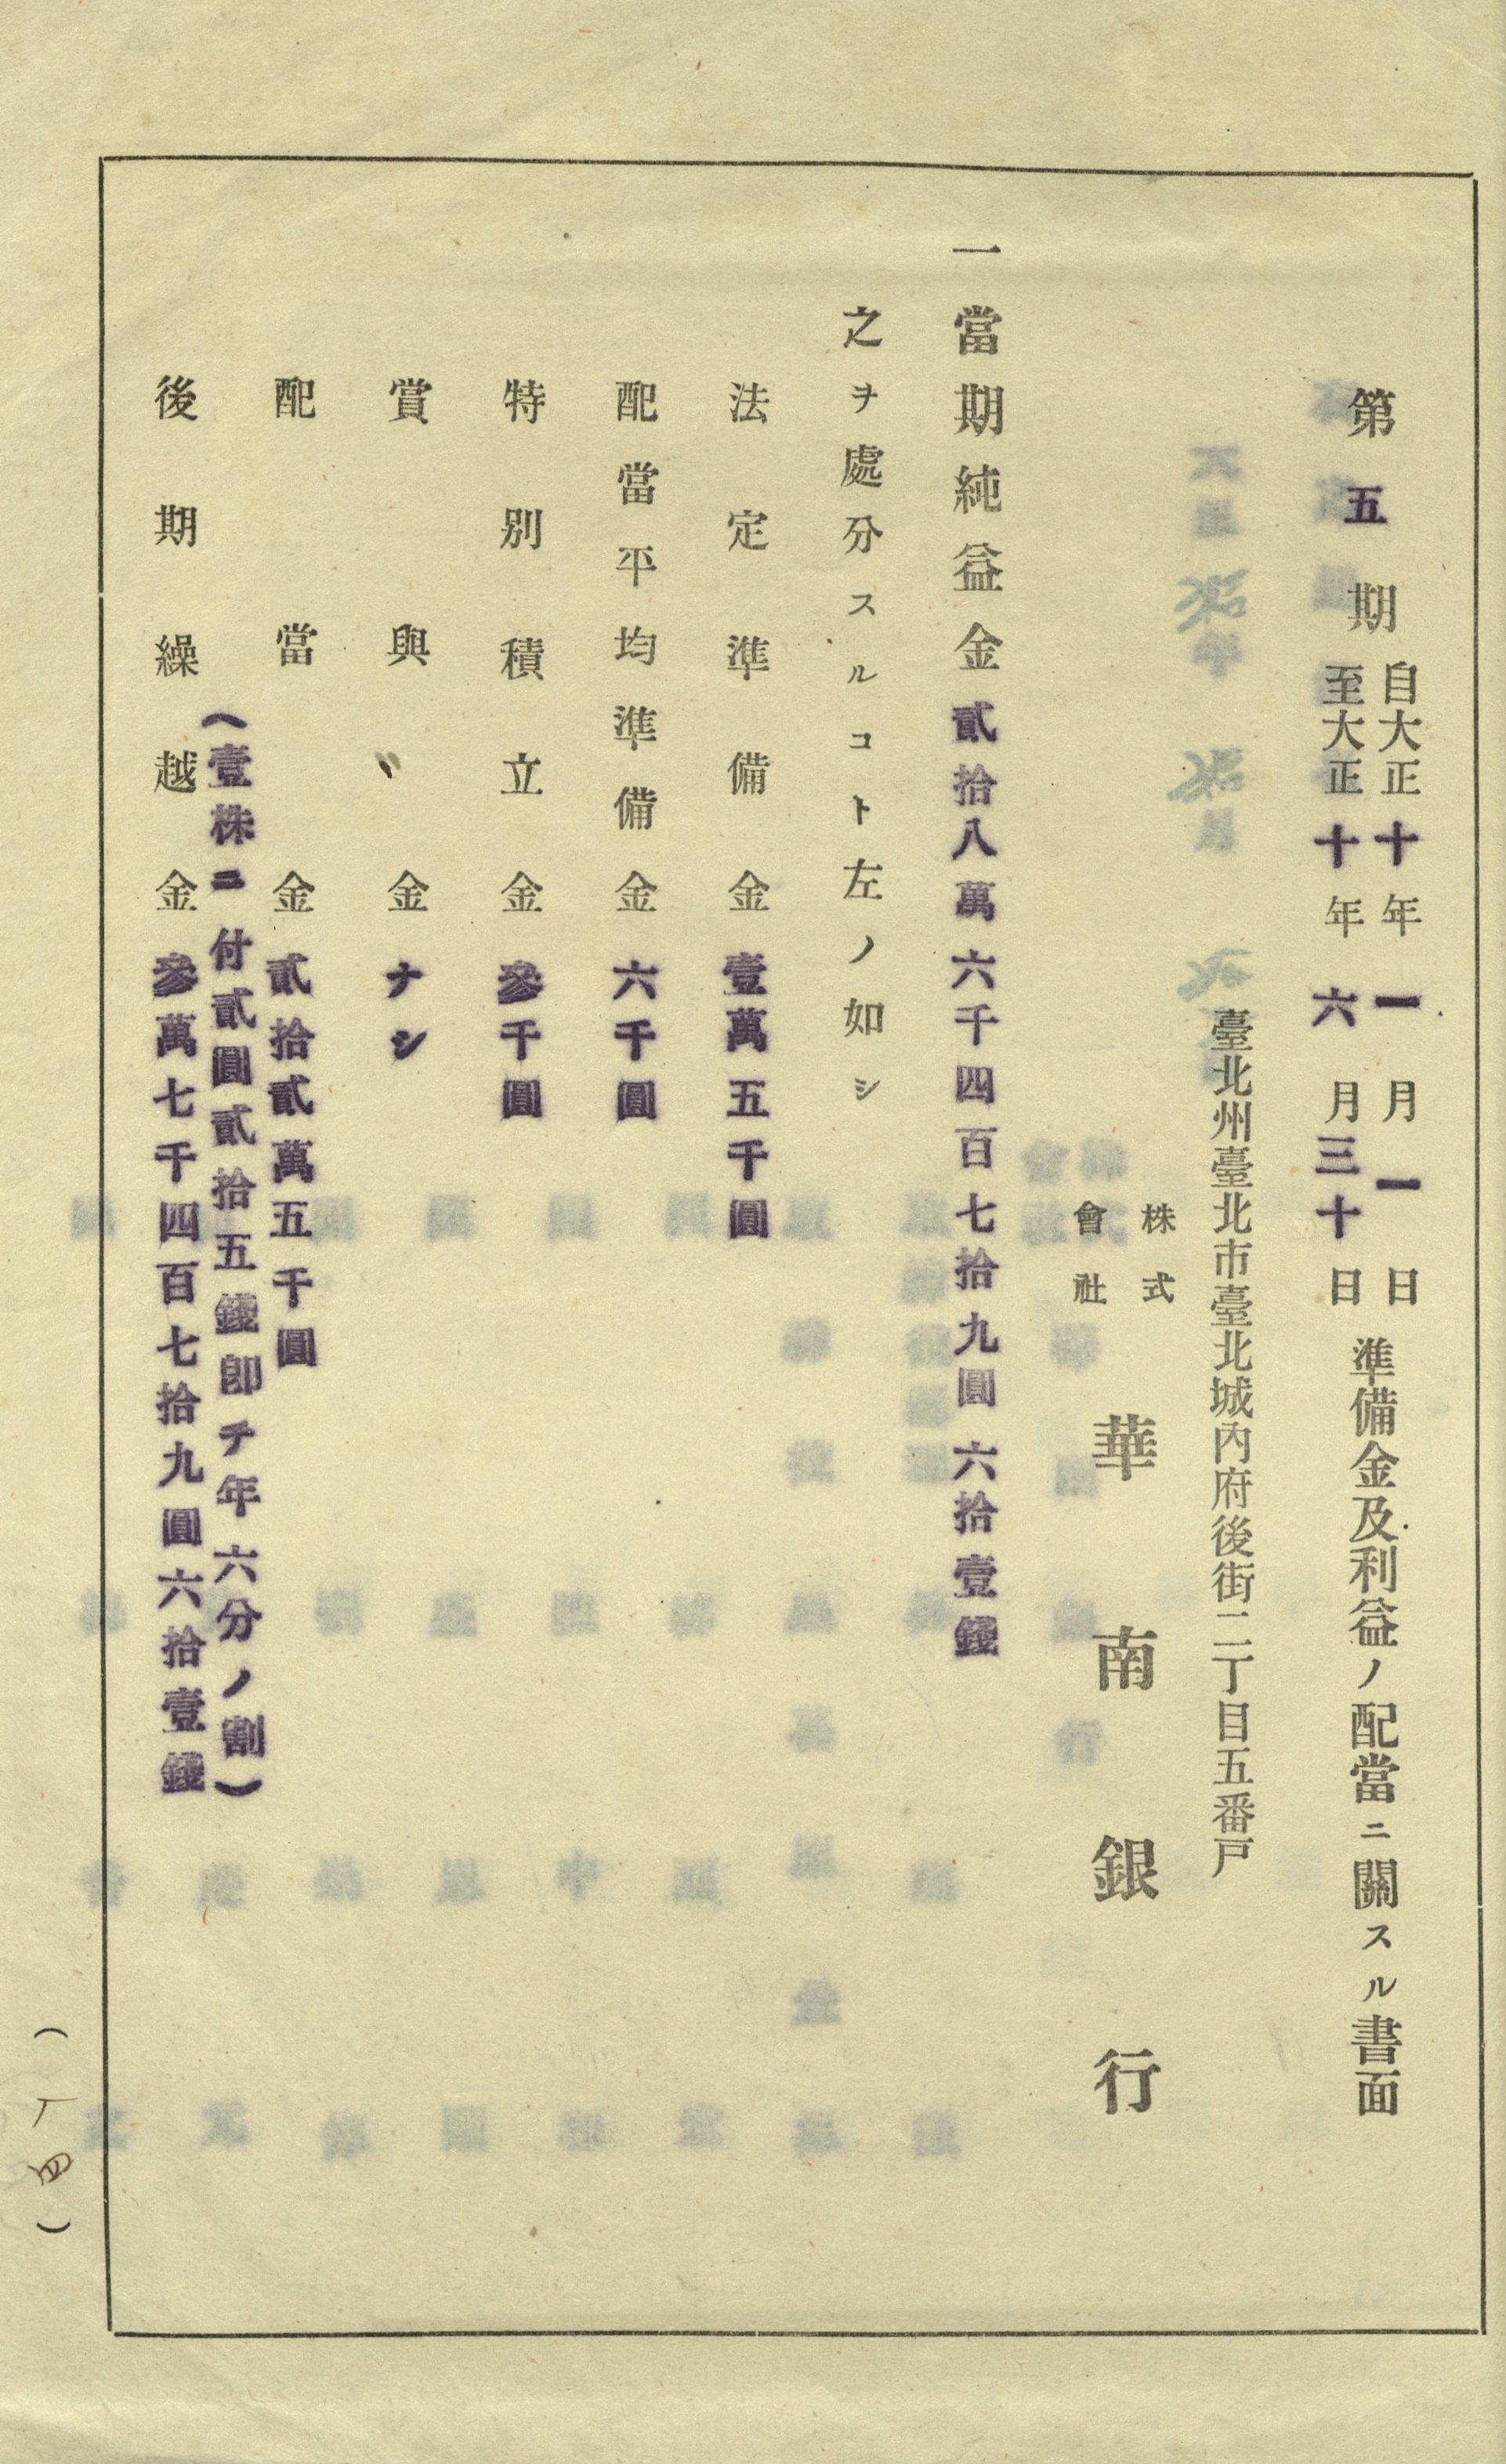 第五期自大正十年一月一日至大正十年六月三十日準備金及利益ノ配當ニ關スル書面
臺北州臺北市臺北城內府後街二丁目五番戸
株式會社華南銀行
一當期純益金貳拾八萬六千四百七拾九圓六拾壹錢
之ヲ處分スルコト左ノ如シ
法定準備金壹萬五千圓
配當平均準備金六千圓
特別積立金參千圓
賞與金ナシ
配當金貳拾貳萬五千圓
(壹株ニ付貳圓貳拾五錢卽チ年六分ノ割)
後期繰越金參萬七千四百七拾九圓六拾壹錢